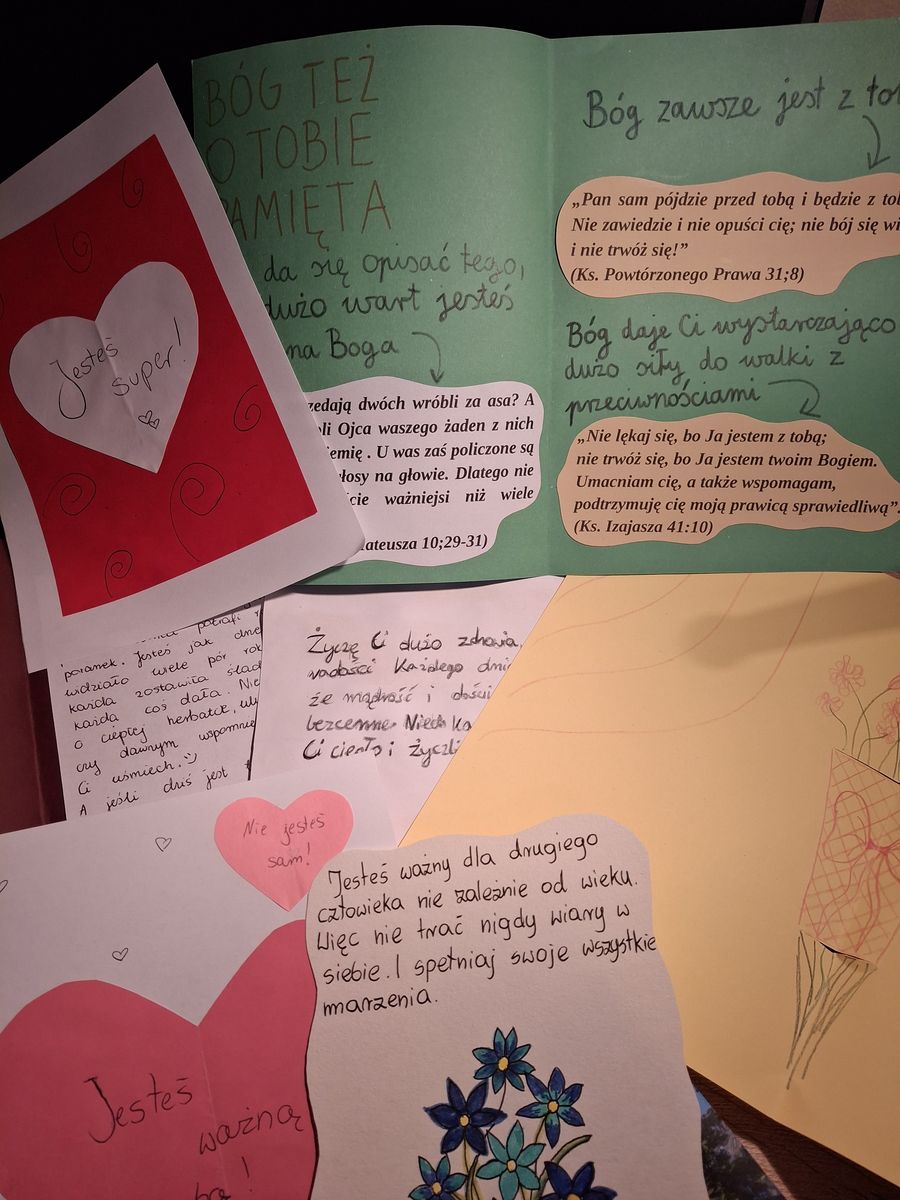 BÓG TEŻ
O TOBIE
PAMIĘTA
da się opisać tego,
dużo wart jesteś
na Boga
zedają dwóch wróbli za asa? A
li Ojca waszego żaden z nich
iemię . U was zaś policzone są
łosy na głowie. Dlatego nie
cie ważniejsi niż wiele
ateusza 10;29-31)
Bóg zawsze jest z to
„Pan sam pójdzie przed tobą i będzie z to
Nie zawiedzie i nie opuści cię; nie bój się wi
i nie trwóż się!”
(Ks. Powtórzonego Prawa 31;8)
Bóg daje Ci wystarczająco
dużo siły do walki z
przeciwnościami
„Nie lękaj się, bo Ja jestem z tobą;
nie trwóż się, bo Ja jestem twoim Bogiem.
Umacniam cię, a także wspomagam,
podtrzymuję cię moją prawicą sprawiedliwą”.
(Ks. Izajasza 41:10)
Jesteś
super!
potrafi
poranek. Jesteś jak
widziało wiele pór rok
każda zostawiła ślad
każda coś dała. Nie
o ciepłej herbatce, ul
czy dawnym wspomnie
Ci uśmiech.
A jeśli dziś jest
Życzę Ci dużo zdrowia,
radości każdego dni
że mądrość i dośw
bezcenne. Niech ka
Ci ciepło i życzli
Nie jesteś
sam!
Jesteś ważny dla drugiego
człowieka nie zależnie od wieku.
Więc nie trać nigdy wiary w
siebie. I spełniaj swoje wszystkie
marzenia.
Jesteś
ważną